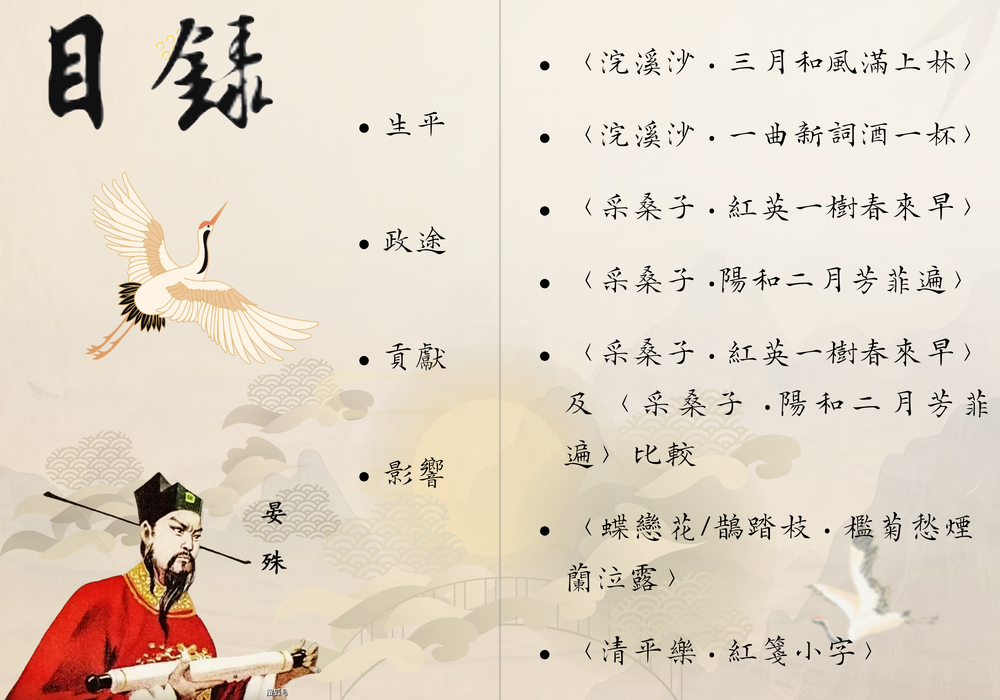 目錄
• 生平
• 政途
• 貢獻
• 影響
晏
殊
• 〈浣溪沙．三月和風滿上林〉
• 〈浣溪沙．一曲新詞酒一杯〉
• 〈采桑子．紅英一樹春來早〉
• 〈采桑子．陽和二月芳菲遍〉
• 〈采桑子．紅英一樹春來早〉
及〈采桑子．陽和二月芳菲
遍〉比較
• 〈蝶戀花/鵲踏枝．檻菊愁煙
蘭泣露〉
• 〈清平樂．紅箋小字〉